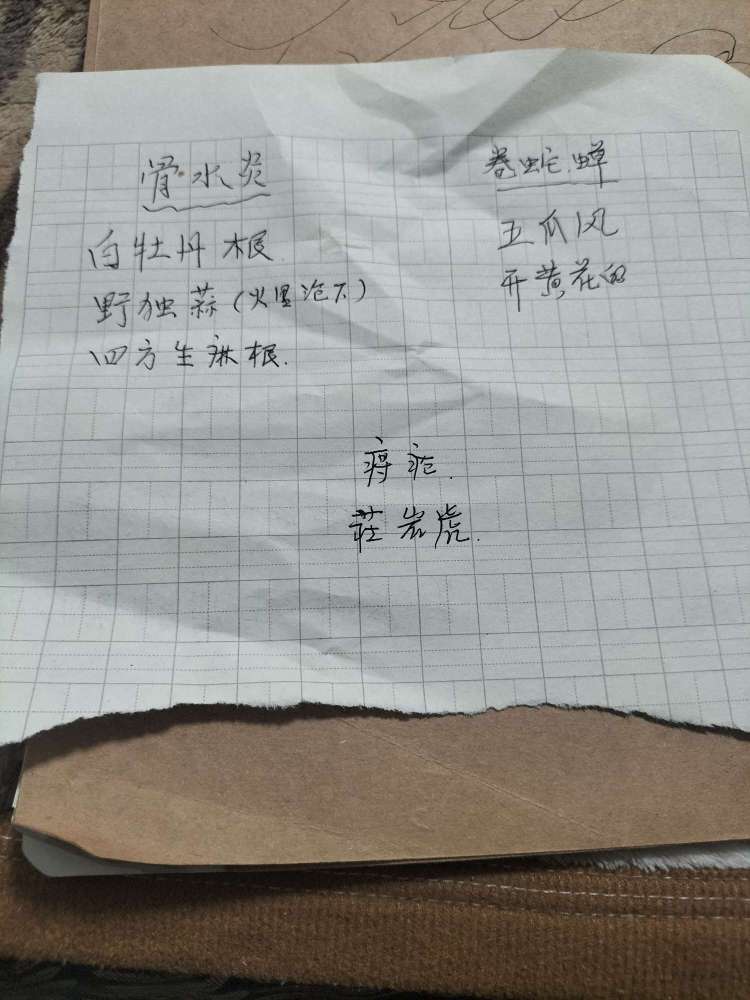 骨水炎
白牡丹根
野独蒜(火里沧下)
四方生麻根.
卷蛇.蝉
五爪风
开黄花的
痔疮.
莊岩虎.